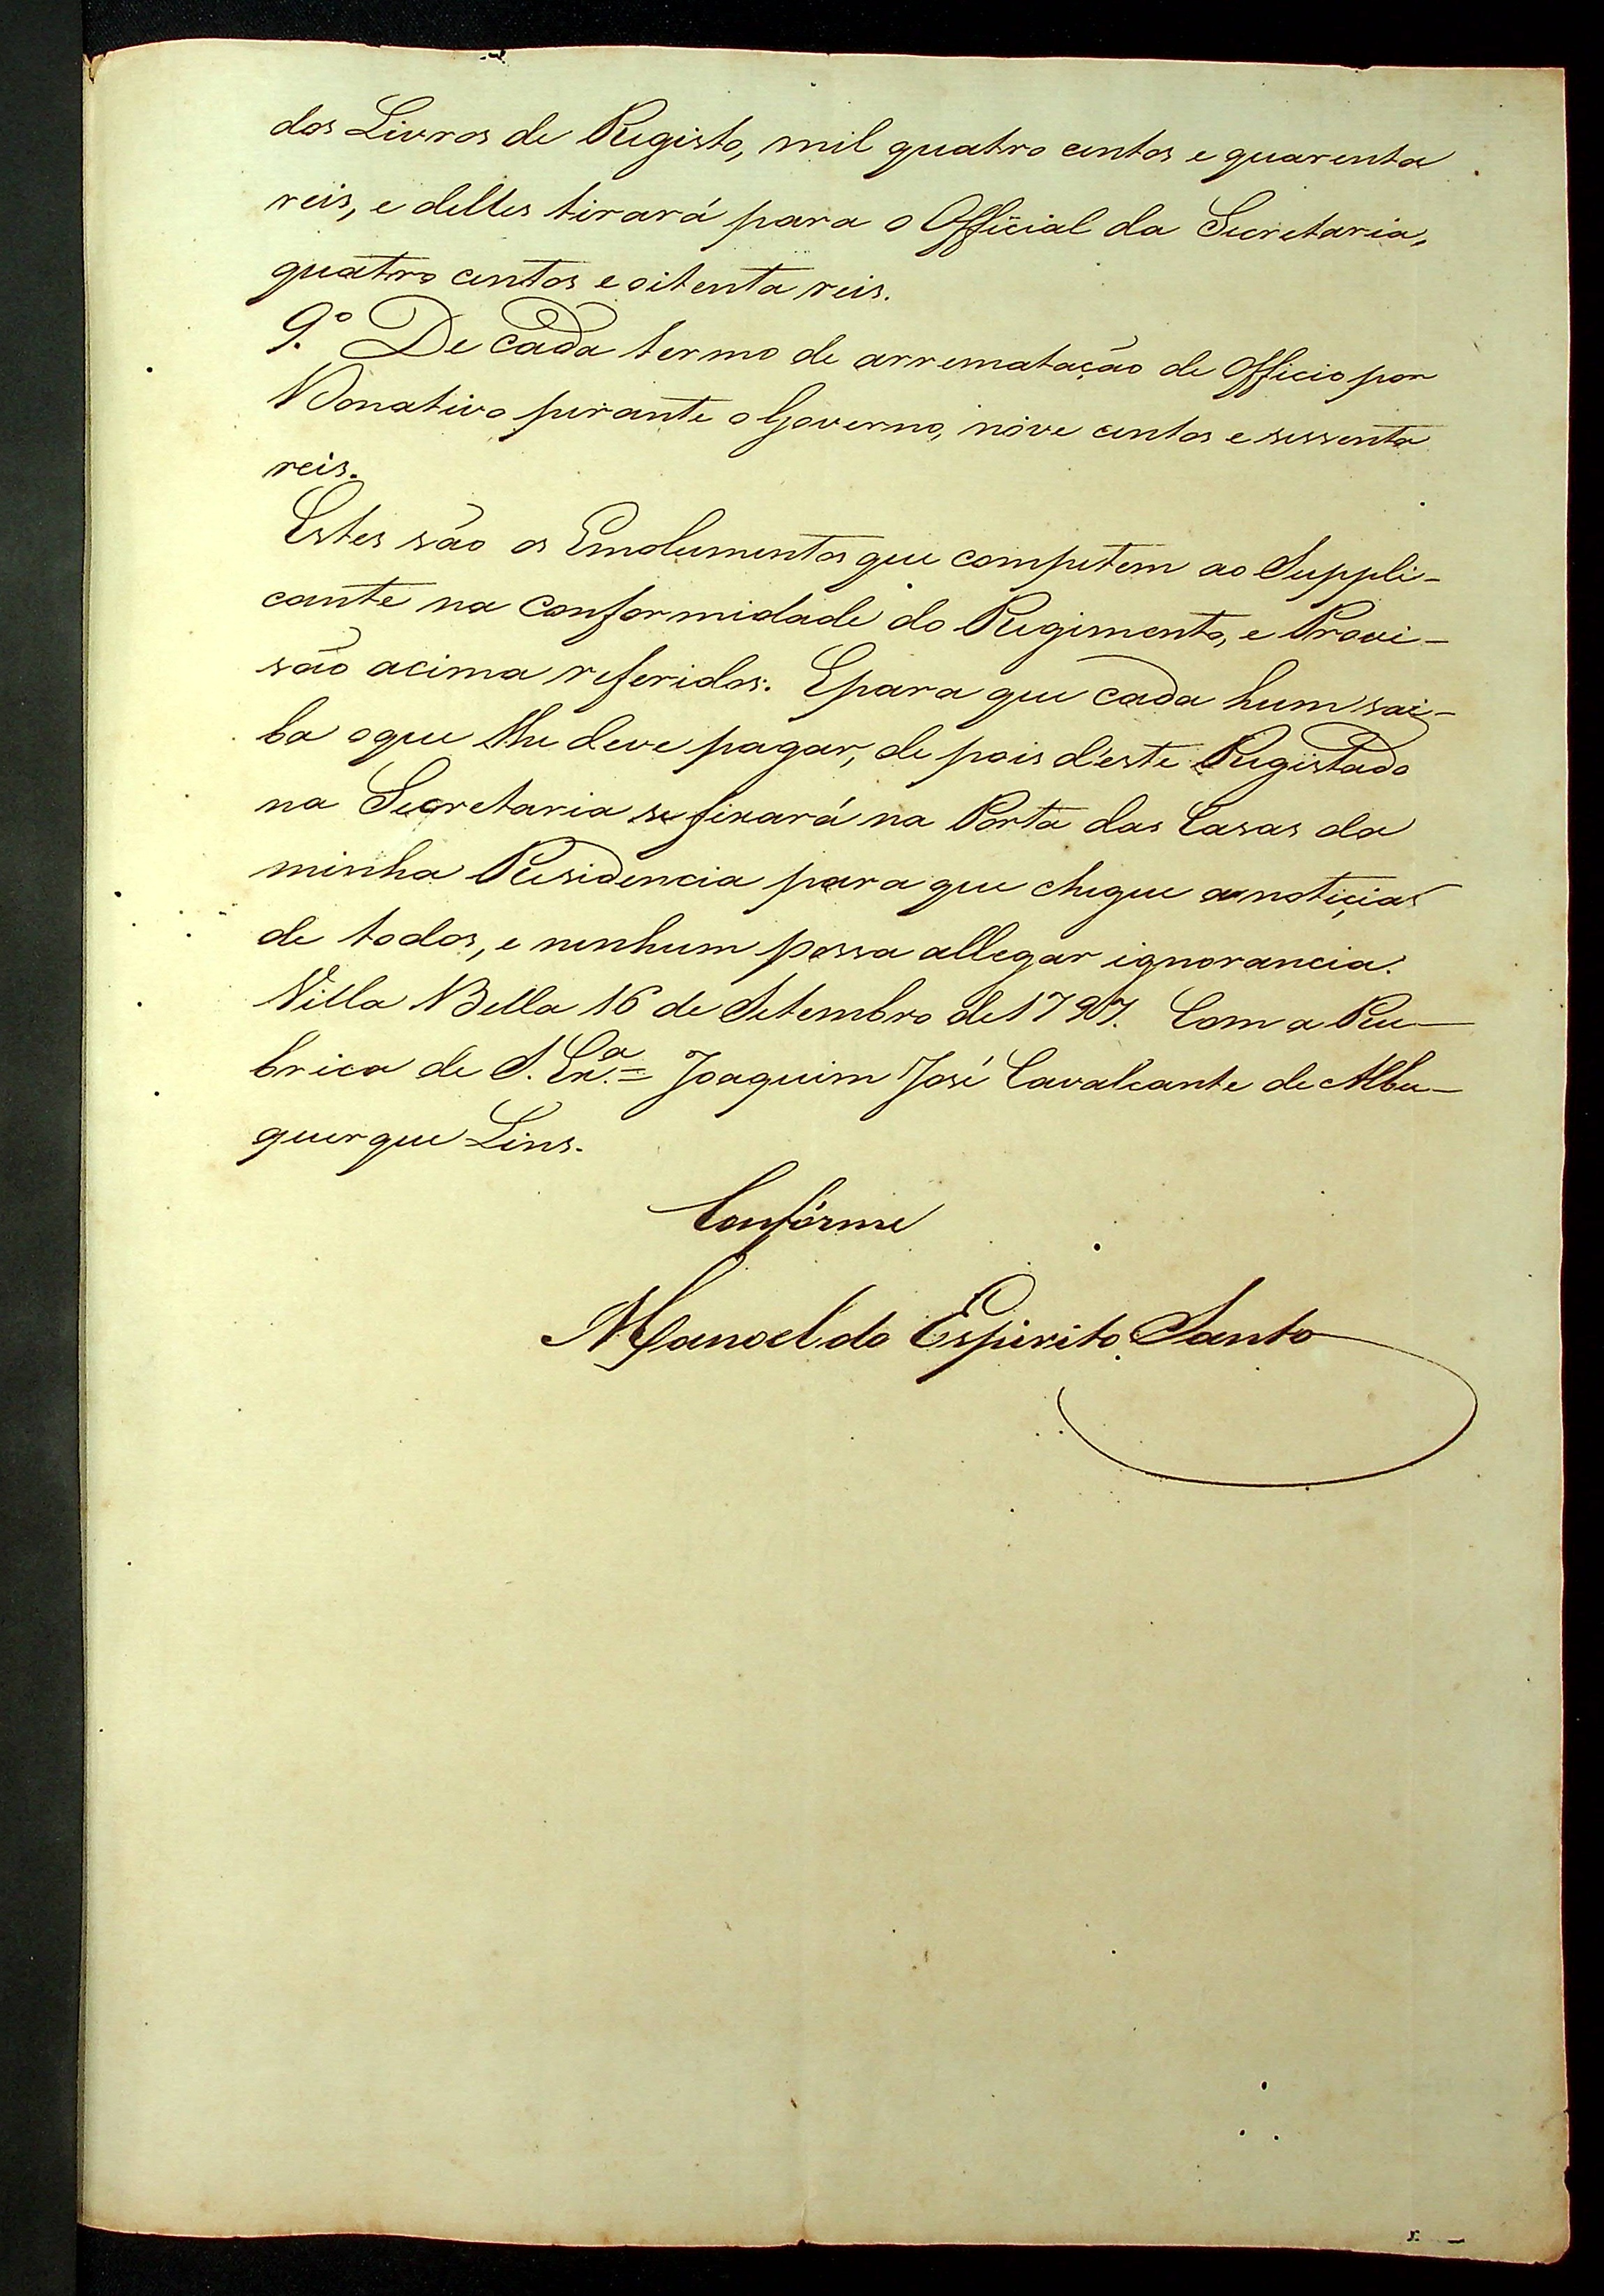 dos Livros de Registo, mil quatro centos e quarenta
reis, e delles tirará para o Official da Secretaria,
quatro centos e oitenta reis.
9.º De cada termo de arrematação de Officio por
Donativo perante o Governo, nóve centos e sessenta
reis.
Estes são os Emolumentos que competem ao Suppli-
cante na conformidade do Regimento, e Provi-
são acima referidos. E para que cada hum sai-
ba o que lhe deve pagar, de pois d'este Registado
na Secretaria se fixará na Porta das Casas da
minha Residencia para que chegue a noticia
de todos, e nenhum possa allegar ignorancia.
Villa Bella 16 de Setembro de 1797. Com a Ru-
brica de S. Ex.ª = Joaquim José Cavalcante de Albu-
querque Lins.
Confórme
Manoel do Espirito Santo